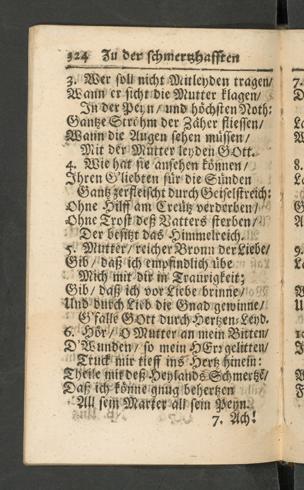 324 Zu der schmertzhafften
3. Wer soll nicht Mitleyden tragen/
Wann er sicht die Mutter klagen/
In der Peyn/ und höchsten Noth:
Gantze Ströhm der Zäher fliessen/
Wann die Augen sehen müssen/
Mit der Mutter leyden GOtt.
4. Wie hat sie ansehen können/
Ihren G'liebten für die Sünden
Gantz zerfleischt durch Geiselstreich:
Ohne Hilff am Creütz verderben/
Ohne Trost deß Vatters sterben/
Der besitzt das Himmelreich.
5. Mutter/ reicher Bronn der Liebe/
Gib/ daß ich empfindlich übe
Mich mit dir in Traurigkeit;
Gib/ daß ich vor Liebe brinne/
Und durch Lieb die Gnad gewinne/
G'falls GOtt durch Hertzen-Leyd.
6. Hör/ O Mutter an mein Bitten/
D'Wunden/ so mein HErr gelitten/
Truck mir tieff ins Hertz hinein:
Theile mit deß Heylands Schmertze/
Daß ich könne gnug behertzen
All sein Marter all sein Peyn.
7. Ach!
7.
D
8.
9.
10